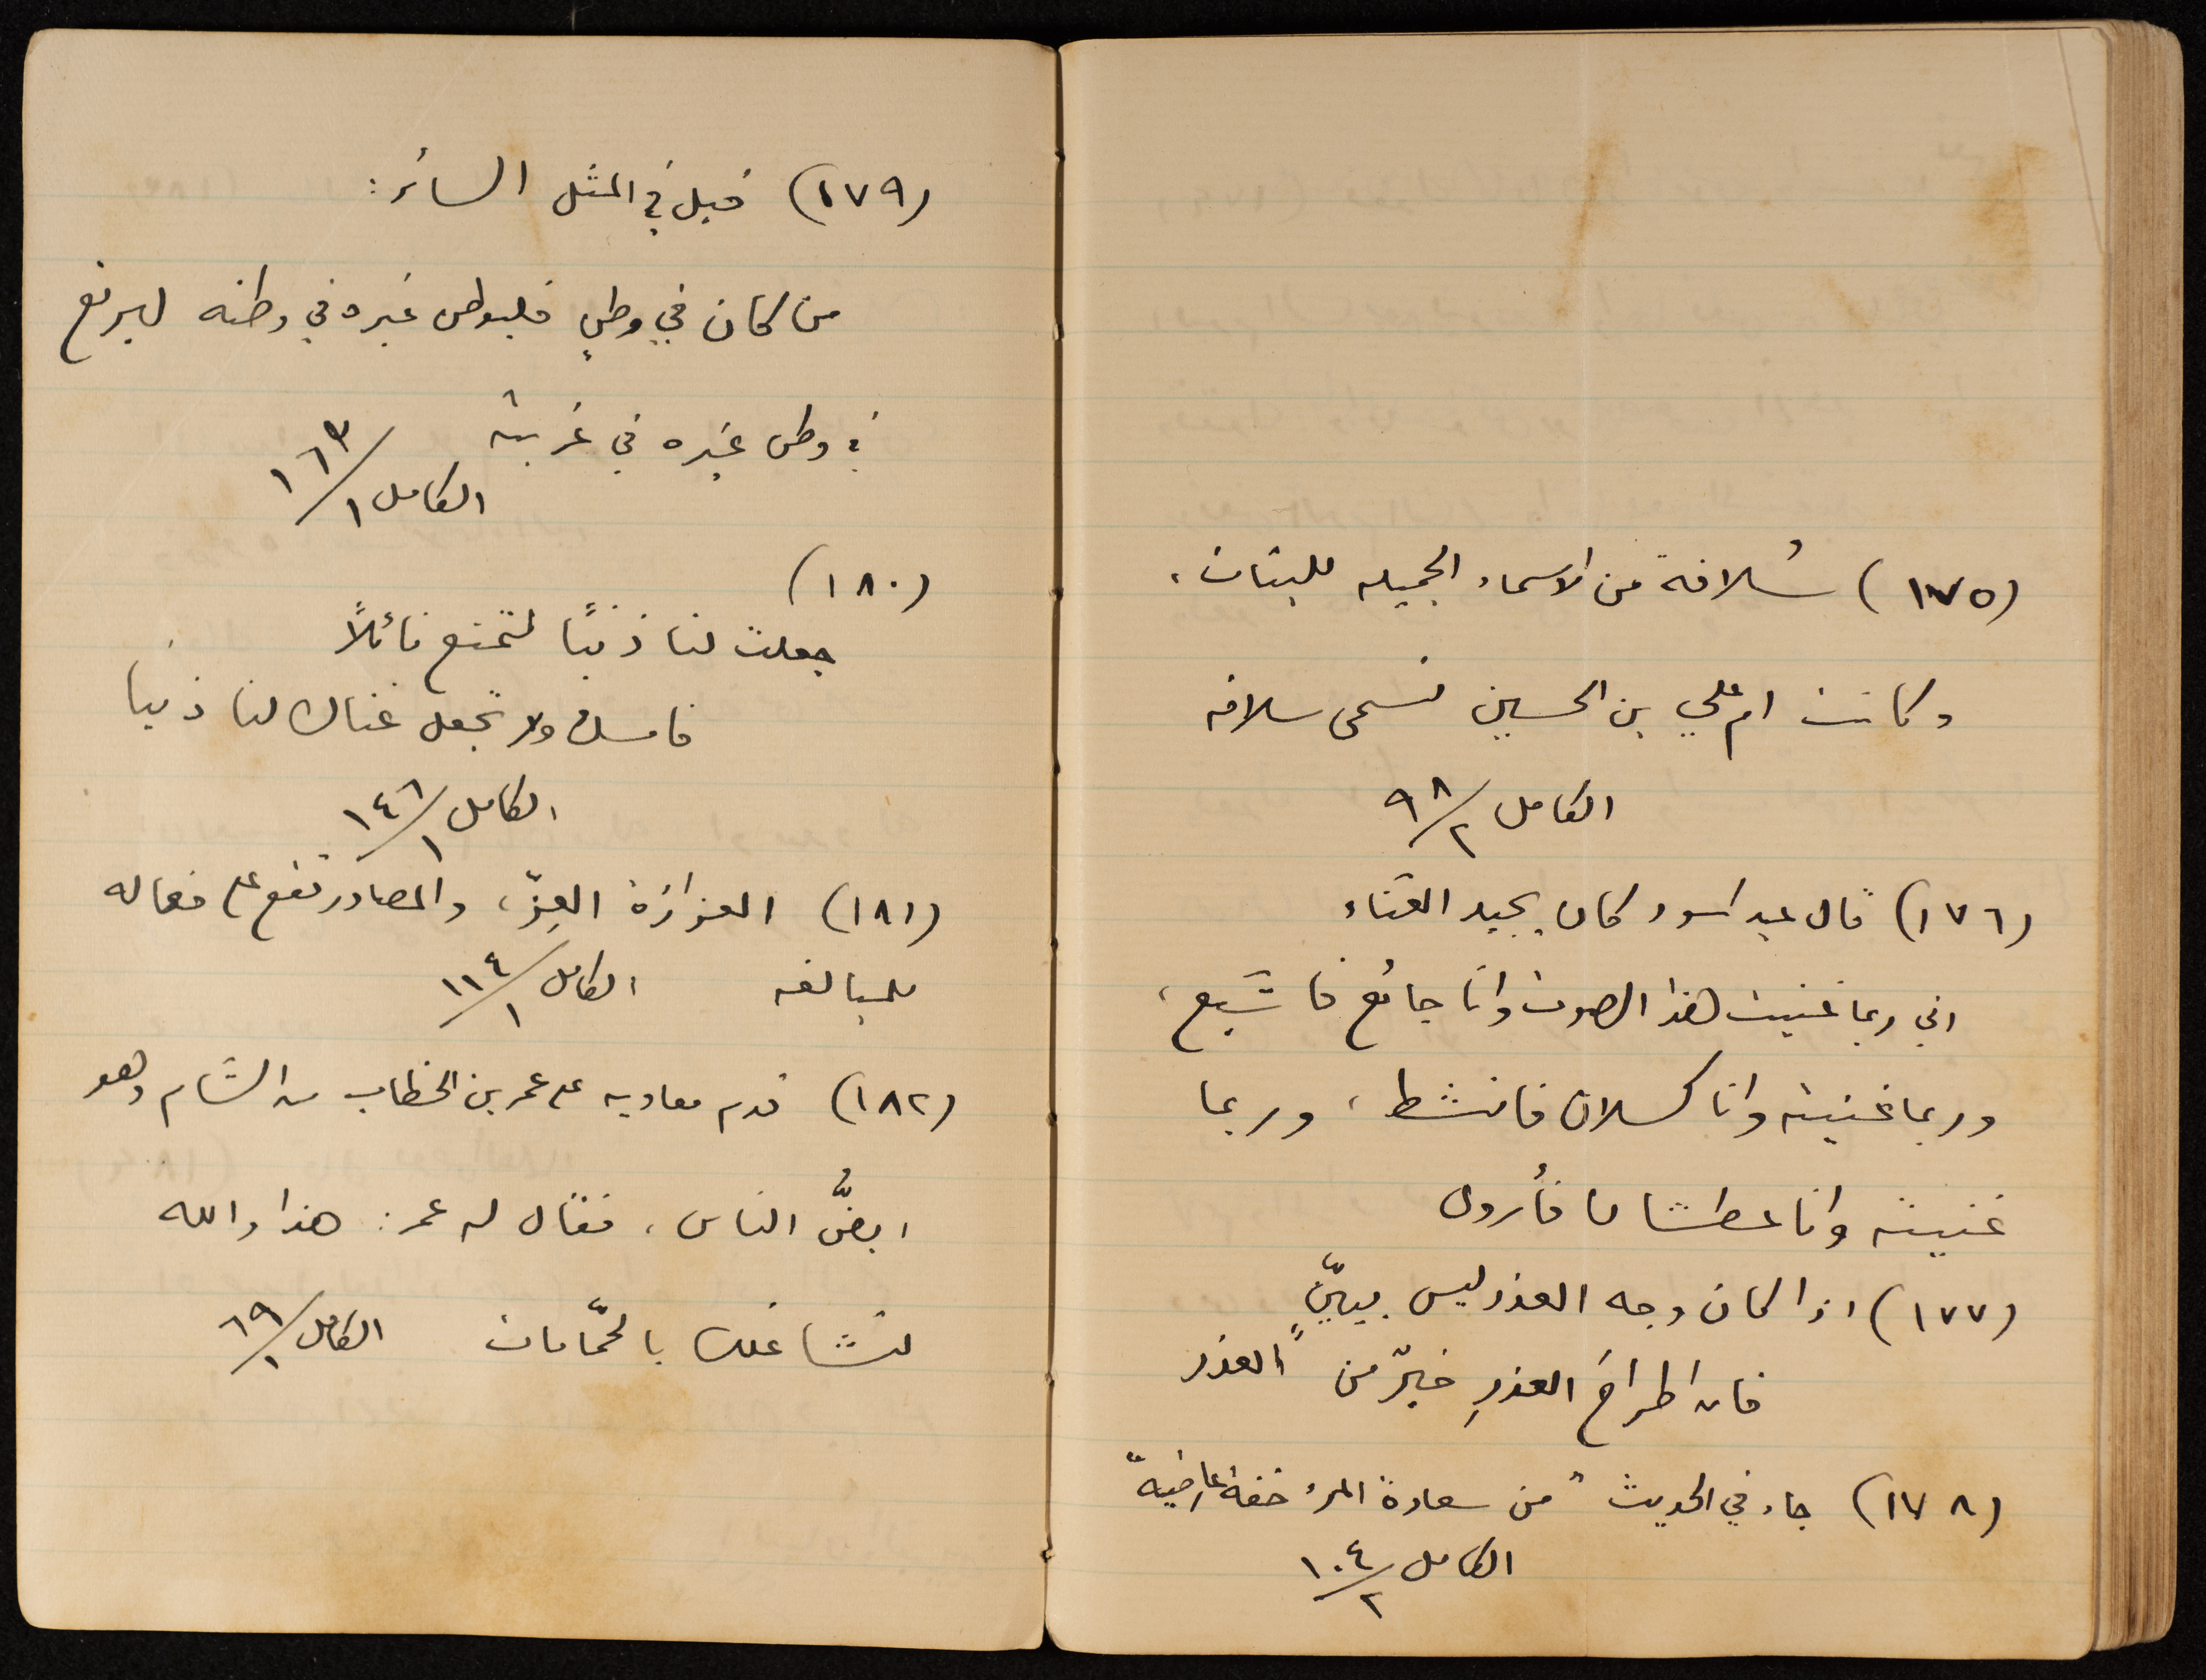 (١٧٥) سُلافة من الاسماء الجميله للبنات،
وكانت ام علي بن الحسين تسمى سلافه
الكامل ٩٨/٢
(١٧٦) قال عبد اسود كان يجيد الغناء
اني ربما غنيت هذا الصوت وانا جائع فاشبع،
وربما غنيته وانا كسلان فانشط، وربما
غنيته وانا عطشان فأروى
(١٧٧) اذا كان وجه العذر ليس ببيّنٍ
فان اطراحَ العذرِ خيرٌ من العذر
(١٧٨) جاء في الحديث "من سعادة المرء خفة عارضيه"
الكامل ١٠٤/٢
(١٧٩) قيل في المثل السائر:
من كان في وطنٍ فليوطن غيره في وطنه ليرتع
في وطن غيره في غربته
الكامل ١٦٣/١
(١٨٠)
جعلت لنا ذنبًا لتمنع نائلاً
فامسك ولا تجعل غناك لنا ذنبا
الكامل ١٤٦/١
(١٨١) العزازة العِزّ، والمصادر تقع على فعاله
للمبالغه الكامل ١١٤/١
(١٨٢) قدم معاويه على عمر بن الخطاب من الشام وهو
ابضُّ الناس، فقال له عمر: هذا والله
لتشاغلك بالحمّامات الكامل ٦٩/١